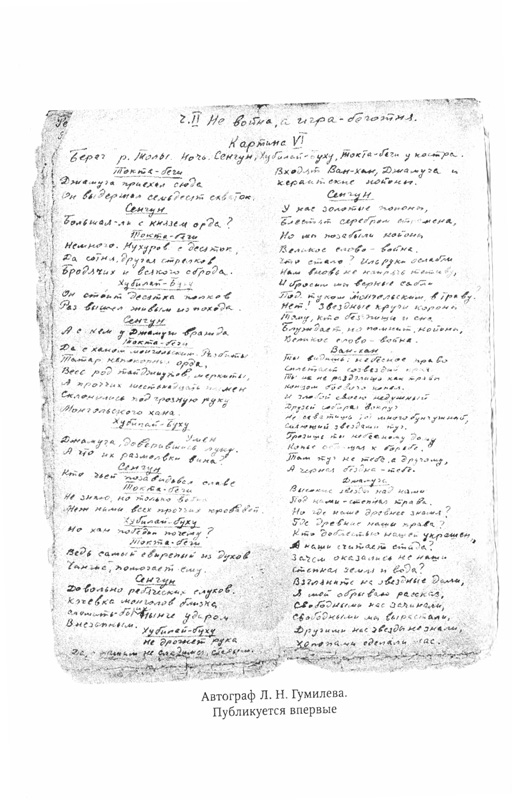 Ч. II Не война, а игра-беготня.
Картина VI
Берег р. Толы. Ночь. Сенгун, Хубилай-Буху, Токта-беги у костра.
Токта-беги
Джамуга приехал сюда
Он выдержал семьдесят схваток.
Сенгун
Большая-ли с князем орда?
Токта-беги
Немного. Нукуров с десяток,
Да сотня, другая стрелков
Бродячих и всякого сброда.
Хубилай-Буху
Он стоит десятка полков
Раз вышел живым из похода.
Сенгун
А с кем у Джамуги вражда
Токта-беги
Да с ханом монгольским. Разбиты
Татар непокорных орда,
Весь род тайджиутов, меркиты,
А прочих
Склонились под грозную руку
Монгольского хана.
Хубилай-Буху
Умен
Джамуга, доверившись луку.
А что их размолвки вина?
Сенгун
Кто чьей позавидовал славе
Токта-беги
Не знаю, но только война
Нож нами всех прочих кровавей.
Хубилай-Буху
Но хан победил почему?
Токта-беги
Ведь самый свирепый из духов
помогает ему.
Сенгун
Довольно ребяческих слухов.
Кочевка монголов близка,
ударом
Внезапным.
Хубилай-Буху
Не дрожит рука
Входят Ван-хан, Джамуга и
кераитские нойоны.
Сенгун
У нас золотые попоны,
Блестят серебром стремена,
Но мы позабыли нойоны
Великое слово - война.
Что стало? Иль руки ослабли
Нам вновь не напрячь тетиву,
И бросим мы верные сабли
Под туком монгольским в траву.
Нет! Звездные кручи короны
Тому, кто без пищи и сна
Блуждает, но помнит, нойоны,
Великое слово - война.
Ван-хан
Ты видишь: небесное право
созвездий края
Ты их не раздавишь как травы
Концом боевого копья.
И злобой своею недужный
Друзей собирая вокруг
Не сватишь
Сияющий звездами туг.
Грозишь ты небесному дому
к борьбе.
Там туг не тебе, а другому,
А черная бездна - тебе.
Джамуга
Высокие звезды над нами
Под нами - степная трава.
Но где наше древнее знамя?
Где древние наши права?
Кто доблестью нашей украшен,
А наши считает стада?
Зачем оказались не наши
Степная земля и вода?
Взгляните на звездные дали,
Я мой обрываю рассказ,
Свободными нас зачинали,
Свободными мы вырастали,
Другими нас звезды не знали,
Холопами сделали нас.
Автограф Л. Н. Гумилева.
Публикуется впервые